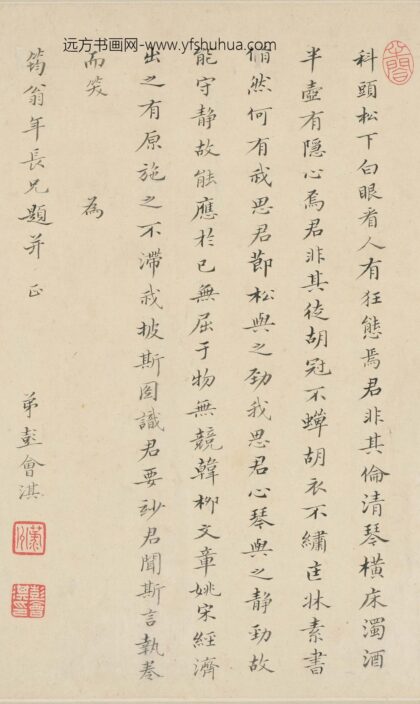 远方书画网-www.yfshuhua.com
科頭松下白眼看人有狂態焉君非其倫清琴橫床濁酒
半壺有隱心焉君非其徒胡冠不蟬胡衣不繡匡牀素書
翛然何有我思君節松與之勁我思君心琴與之靜勁故
能守靜故能應於己無屈于物無競韓柳文章姚宋經濟
出之有原施之不滯我披斯圖識君要玅君聞斯言執卷
而笑 為
筠翁年長兄題并正
弟彭會淇